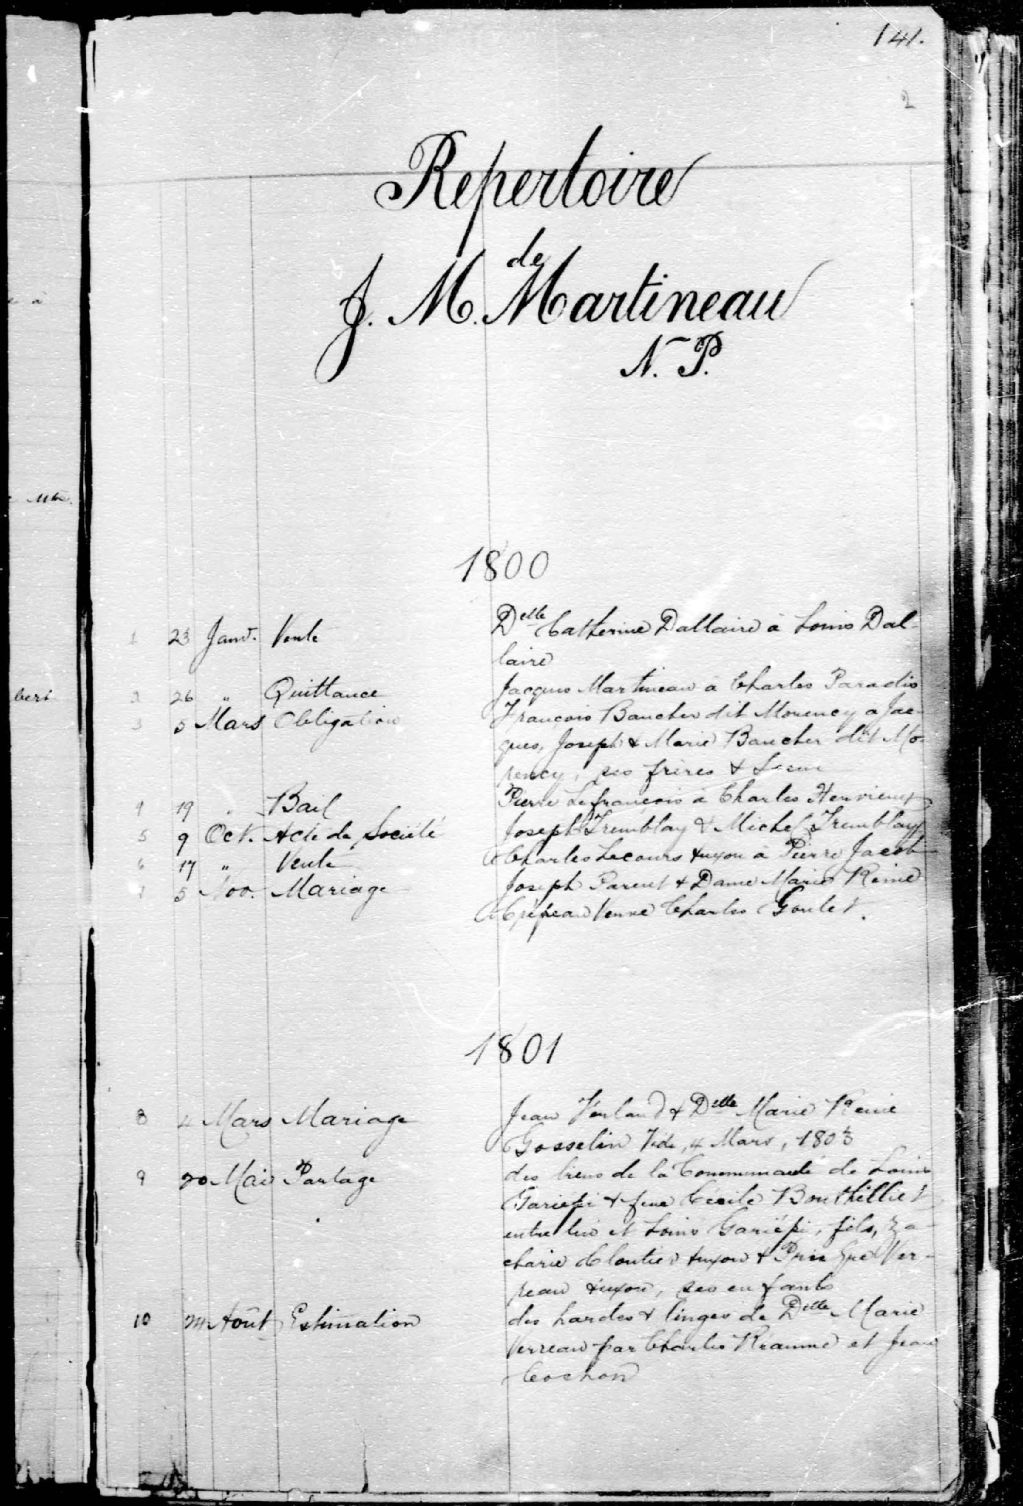 141.
2
Repertoire
de
J. M. Martineau
N. P.
1800
1 23 Janv. Vente Delle Catherine Dallaire à Louis Dal-
laire
2 26 " Quittance Jacques Martineau à Charles Paradis
3 5 Mars Obligation François Baucher dit Morency a Jac-
ques, Joseph & Marie Baucher dit Mo-
rency, ses frères & Soeur
4 19 " Bail Pierre Lefrançois à Charles
5 9 Oct. Acte de Société Joseph Tremblay & Michel Tremblay
6 17 " Vente Charles Lecours &uxon à Pierre Jacob
7 5 Nov. Mariage Joseph Parent & Dame Marie Reine
Crépeau Veuve Charles Goulet.
1801
8 4 Mars Mariage Jean & Delle Marie Reine
Gosselin Vide, 4 Mars, 1803
9 20 Mai Partage des biens de la Communauté de Louis
Gariépi & feue Cécile Bouthillet
entre lui et Louis Gariépi, fils, Za-
charie Cloutier &uxon & Ver-
reau &uxon, ses enfants
10 Août Estimation des hardes & linges de Delle Marie
Verreau par Charles et Jean
Cochon